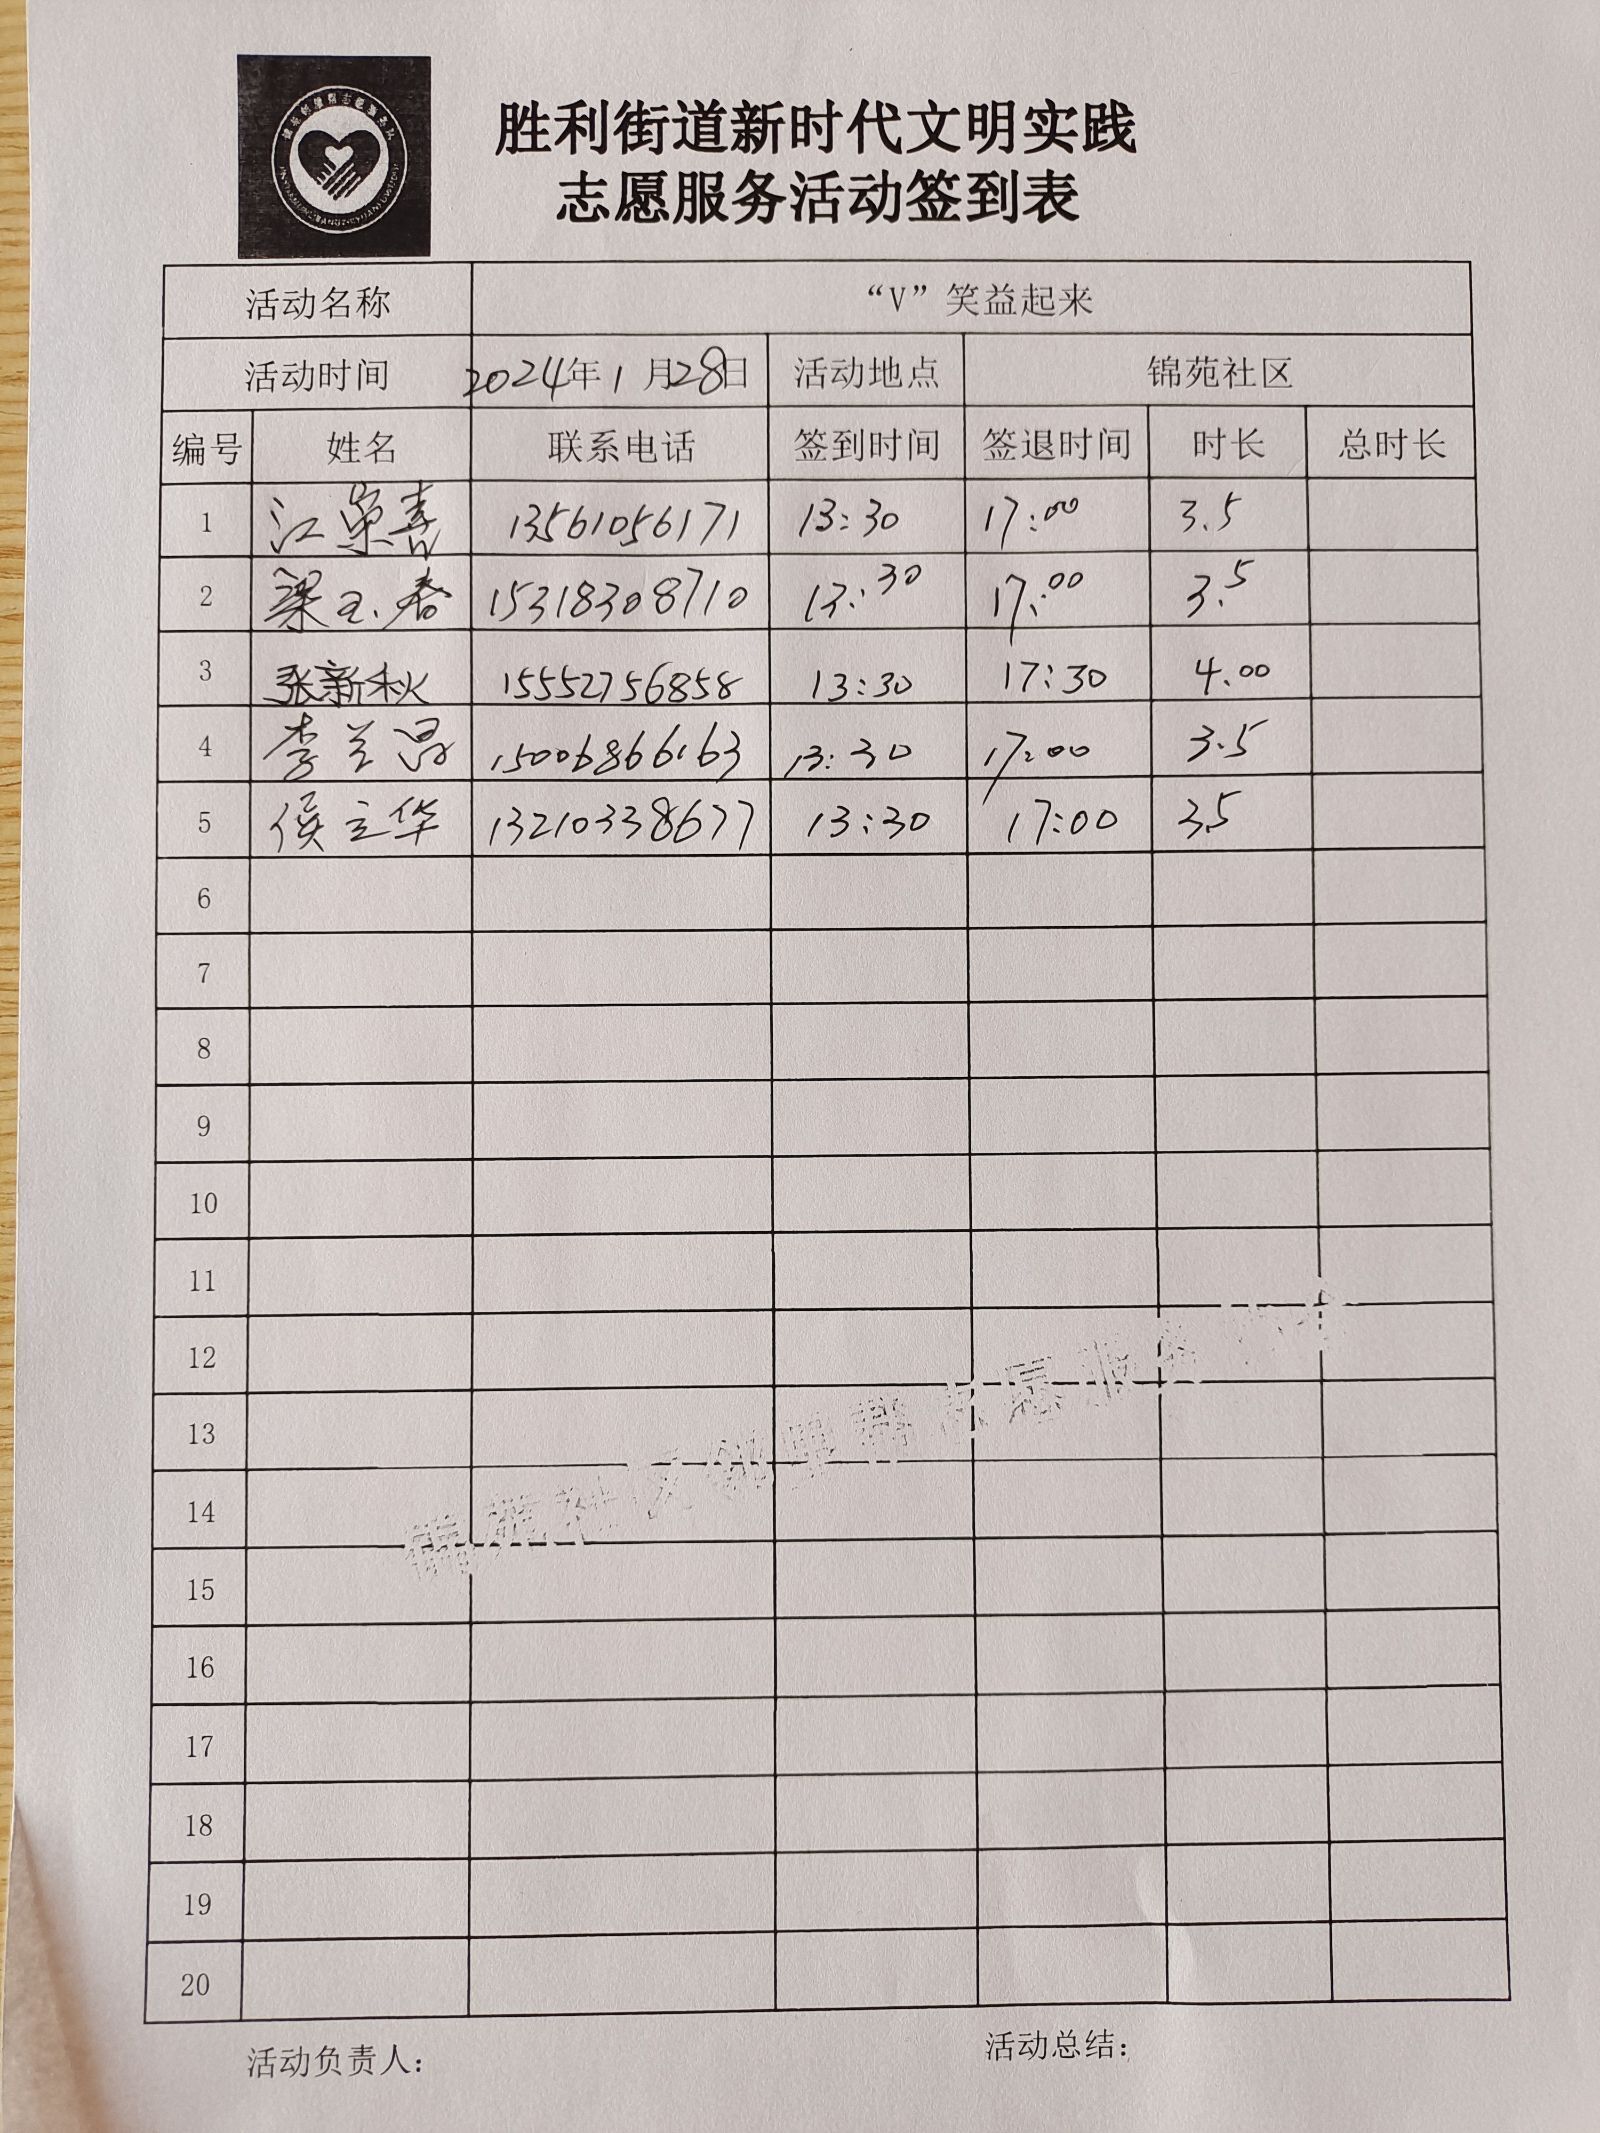 胜利街道新时代文明实践
志愿服务活动签到表
活动名称 “V”笑益起来
活动时间 2024年1月28日 活动地点 锦苑社区
编号 姓名 联系电话 签到时间 签退时间 时长 总时长
1 江崇喜 13561056171 13:30 17:00 3.5
2 梁玉春 15318308710 13:30 17:00 3.5
3 张新秋 15552756858 13:30 17:30 4.00
4 李兰昂 15006866163 13:30 17:00 3.5
5 侯立华 13210338677 13:30 17:00 3.5
6
7
8
9
10
11
12
13
14
15
16
17
18
19
20
锦苑社区邻里帮志愿服务
活动负责人:
活动总结: